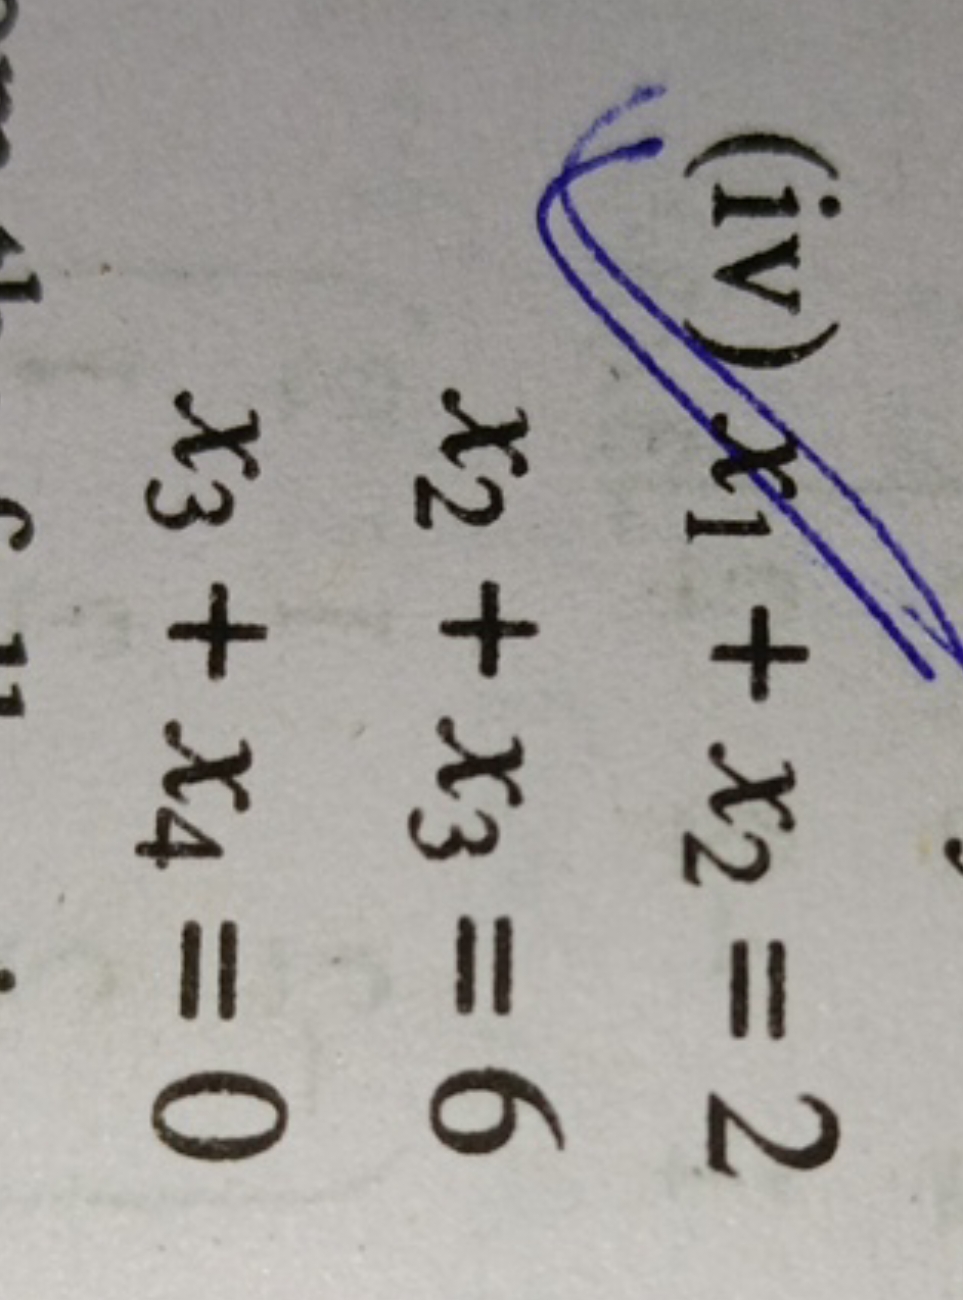 (iv) x₁ + x₂ = 2
x₂ + x₃ = 6
x₃ + x₄ = 0